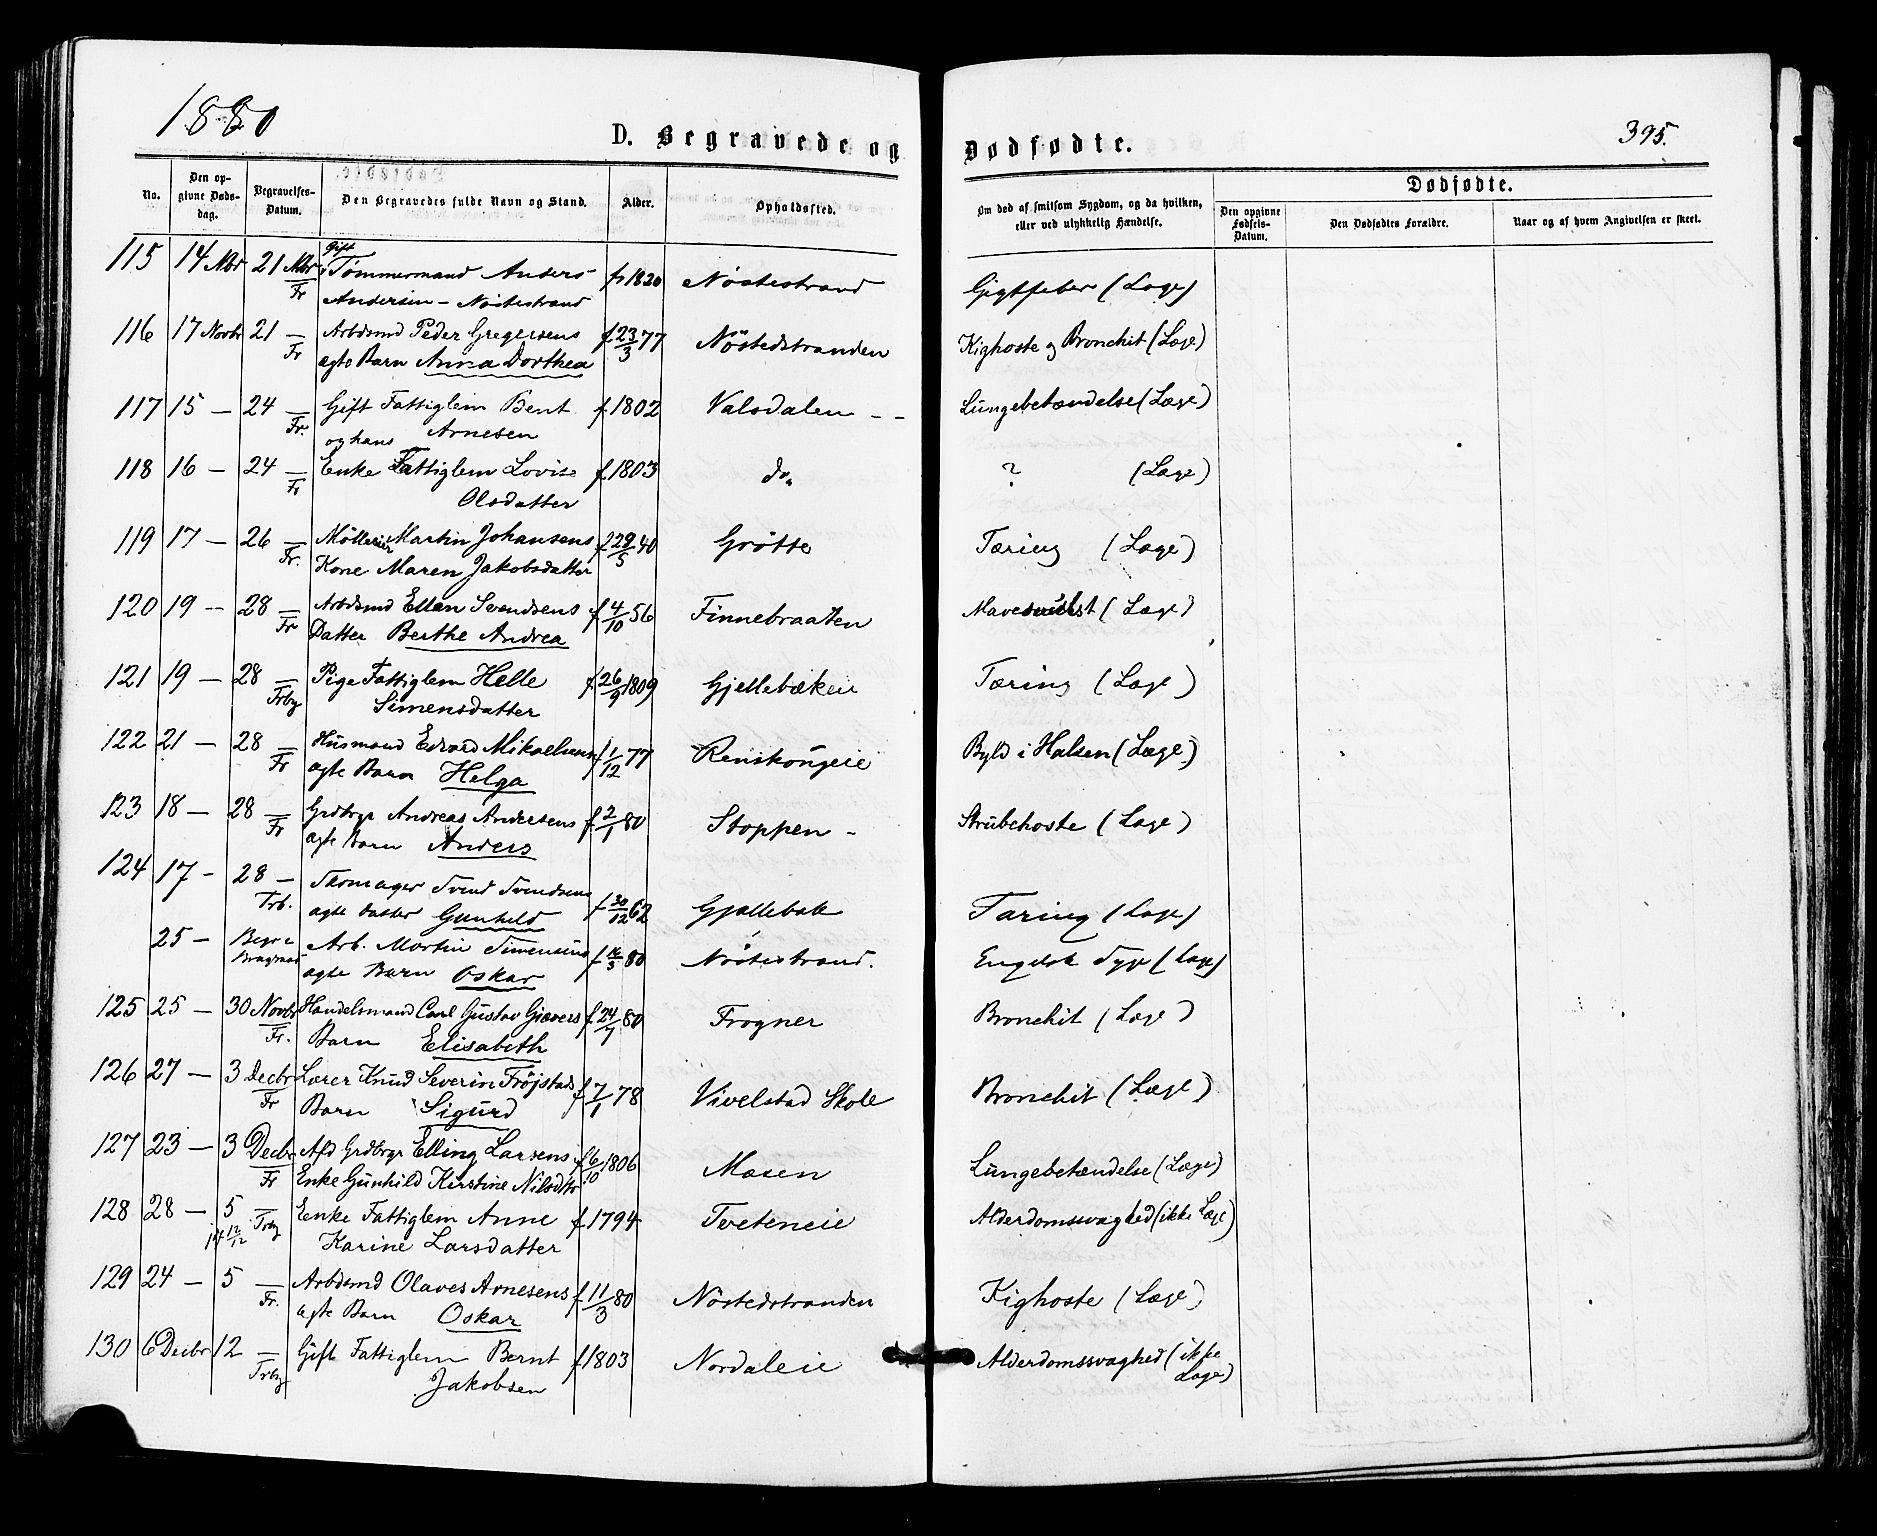 1880
D. Begravede og Dødfødte.
395.
No. Den opgivne Dødsdag. Begravelses-Datum. Den Begravedes fulde Navn og Stand. Alder. Opholdssted. Om død af smitsom Sygdom, og da hvilken, eller ved ulykkelig Hændelse. Den opgivne Fødsels-Datum. Den Dødfødtes Forældre. Naar og af hvem Angivelsen er skeet.
Dødfødte.
115 14 Nbr 21 Nbr Fr Gift Tømmermand Anders f 1820 Nöstestrand Gigtfeber (Læge)
Andersen – Nöstestrand
116 17 Novbr 21 — Fr Arbdsmd Peder Gregersens f 23/3 77 Nöstedstranden Kighoste og Bronchit (Læge)
ægte Barn Anna Dorthea
117 15 — 24 — Fr. Gift Fattiglem Bent f. 1802 Valsdalen - - Lungebetændelse (Læge)
og hans Arnesen
118 16 — 24 — Fr Enke Fattiglem Lovise f. 1803 do ? (Læge)
Olsdatter
119 17 — 26 — Fr. Möller Martin Johansens f 29/5 40 Grötte Tæring (Læge)
Kone Maren Jakobsdatter
120 19 — 28 — Fr Arbdsmd Ellen Svendsens f 4/10 56 Finnebraaten (Læge)
Datter Berthe Andrea
121 19 — 28 — Frby Pige Fattiglem Helle f 26/9 1809 Gjellebæken Tæring (Læge)
Simensdatter
122 21 — 28 — Fr Husmand Edvard Mikaelsens f 1/12 77 Renskougeie Byld i Halsen (Læge)
ægte Barn Helga
123 18 — 28 — Fr Grdbrgr Andreas Andersens f. 2/1 80 Stoppen - Strubehoste (Læge)
ægte Barn Anders
124 17 - 28 — Frb. Skomager Svend Svendsens f 30/12 62 Gjellebæk Tæring (Læge)
ægte datter Gunhild
25 — Begr i Bragernes Arb. Martin Simensens f 16/3 80 Nöstestrand. Engelsk Syge (Læge)
ægte Barn Oskar
125 25 — 30 Novbr Fr. Handelsmand Carl Gustav Gjævers f 24/7 80 Frogner Bronchit (Læge)
Barn Elisabeth
126 27 — 3 Decbr Fr Lærer Knud Severin Fröjstads f 7/1 78 Vivelstad Skole Bronchit (Læge)
Barn Sigurd
127 23 — 3 Decbr Fr Afd Grdbrgr Elling Larsens f 6/10 1806 Mosen Lungebetændelse (Læge)
Enke Gunhild Kirstine Nilsdtr
128 28 — 5 — Frby Enke Fattiglem Anne f. 1794 Tveteneie Alderdomssvaghed (ikke Læge)
12/12 Karine Larsdatter
129 24 — 5 — Fr. Arbdsmd Olaves Arnesens f 11/3 80 Nöstedstranden Kighoste (Læge)
ægte Barn Oskar
130 6 Decbr 12 — Frby Gift Fattiglem Bernt f 1803 Nordaleie Alderdomssvaghed (ikke
Jakobsen Læge)